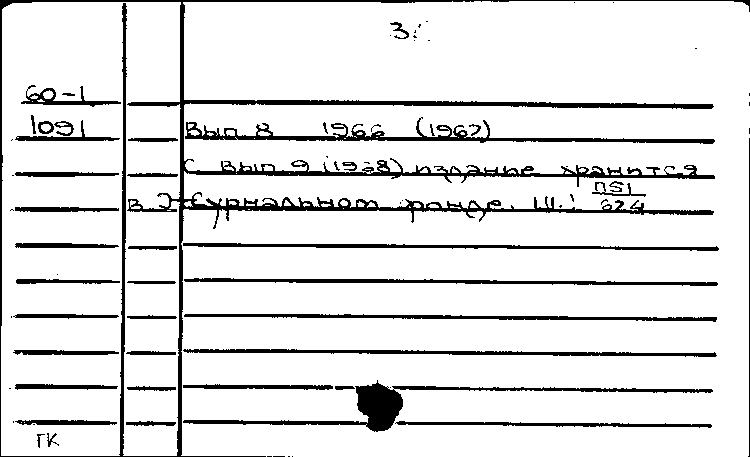 3
60-1
1091 Вып. 8 1966 (1967)
С вып. 9 (1968) издание хранится
в журнальном фонде. Ш.: П51/624
ГК